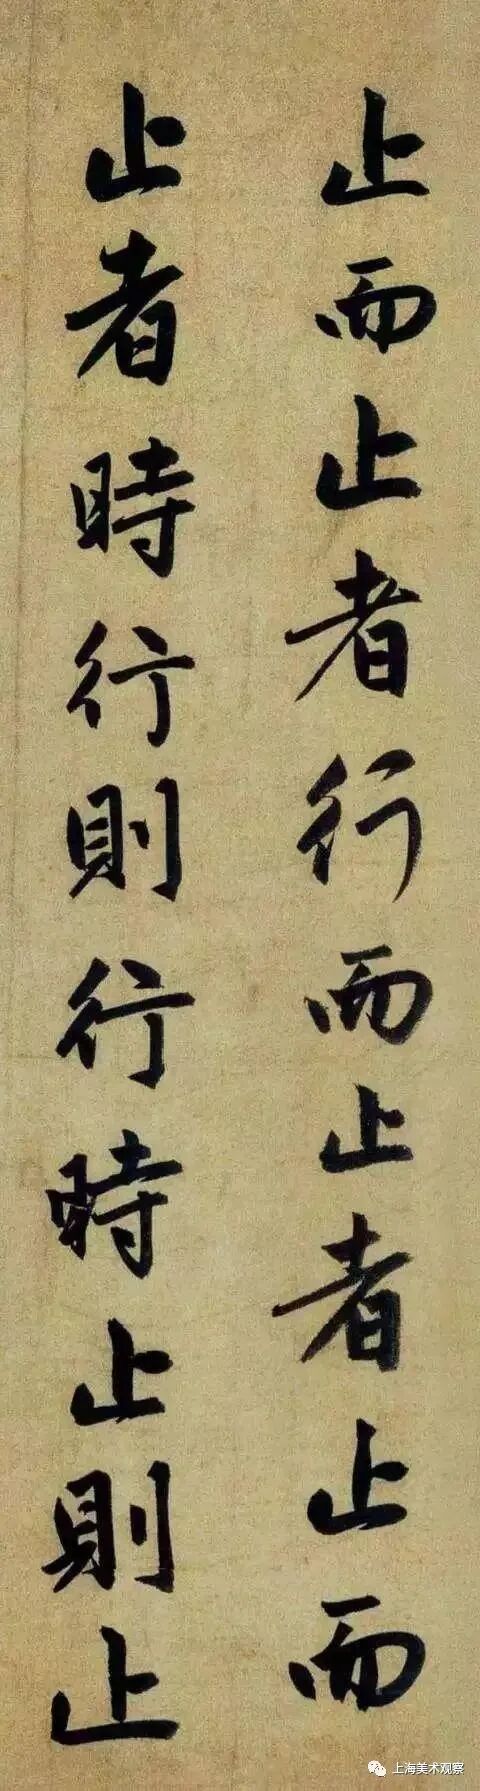 止而止者行而止者止而
止者時行則行時止則止
上海美术观察